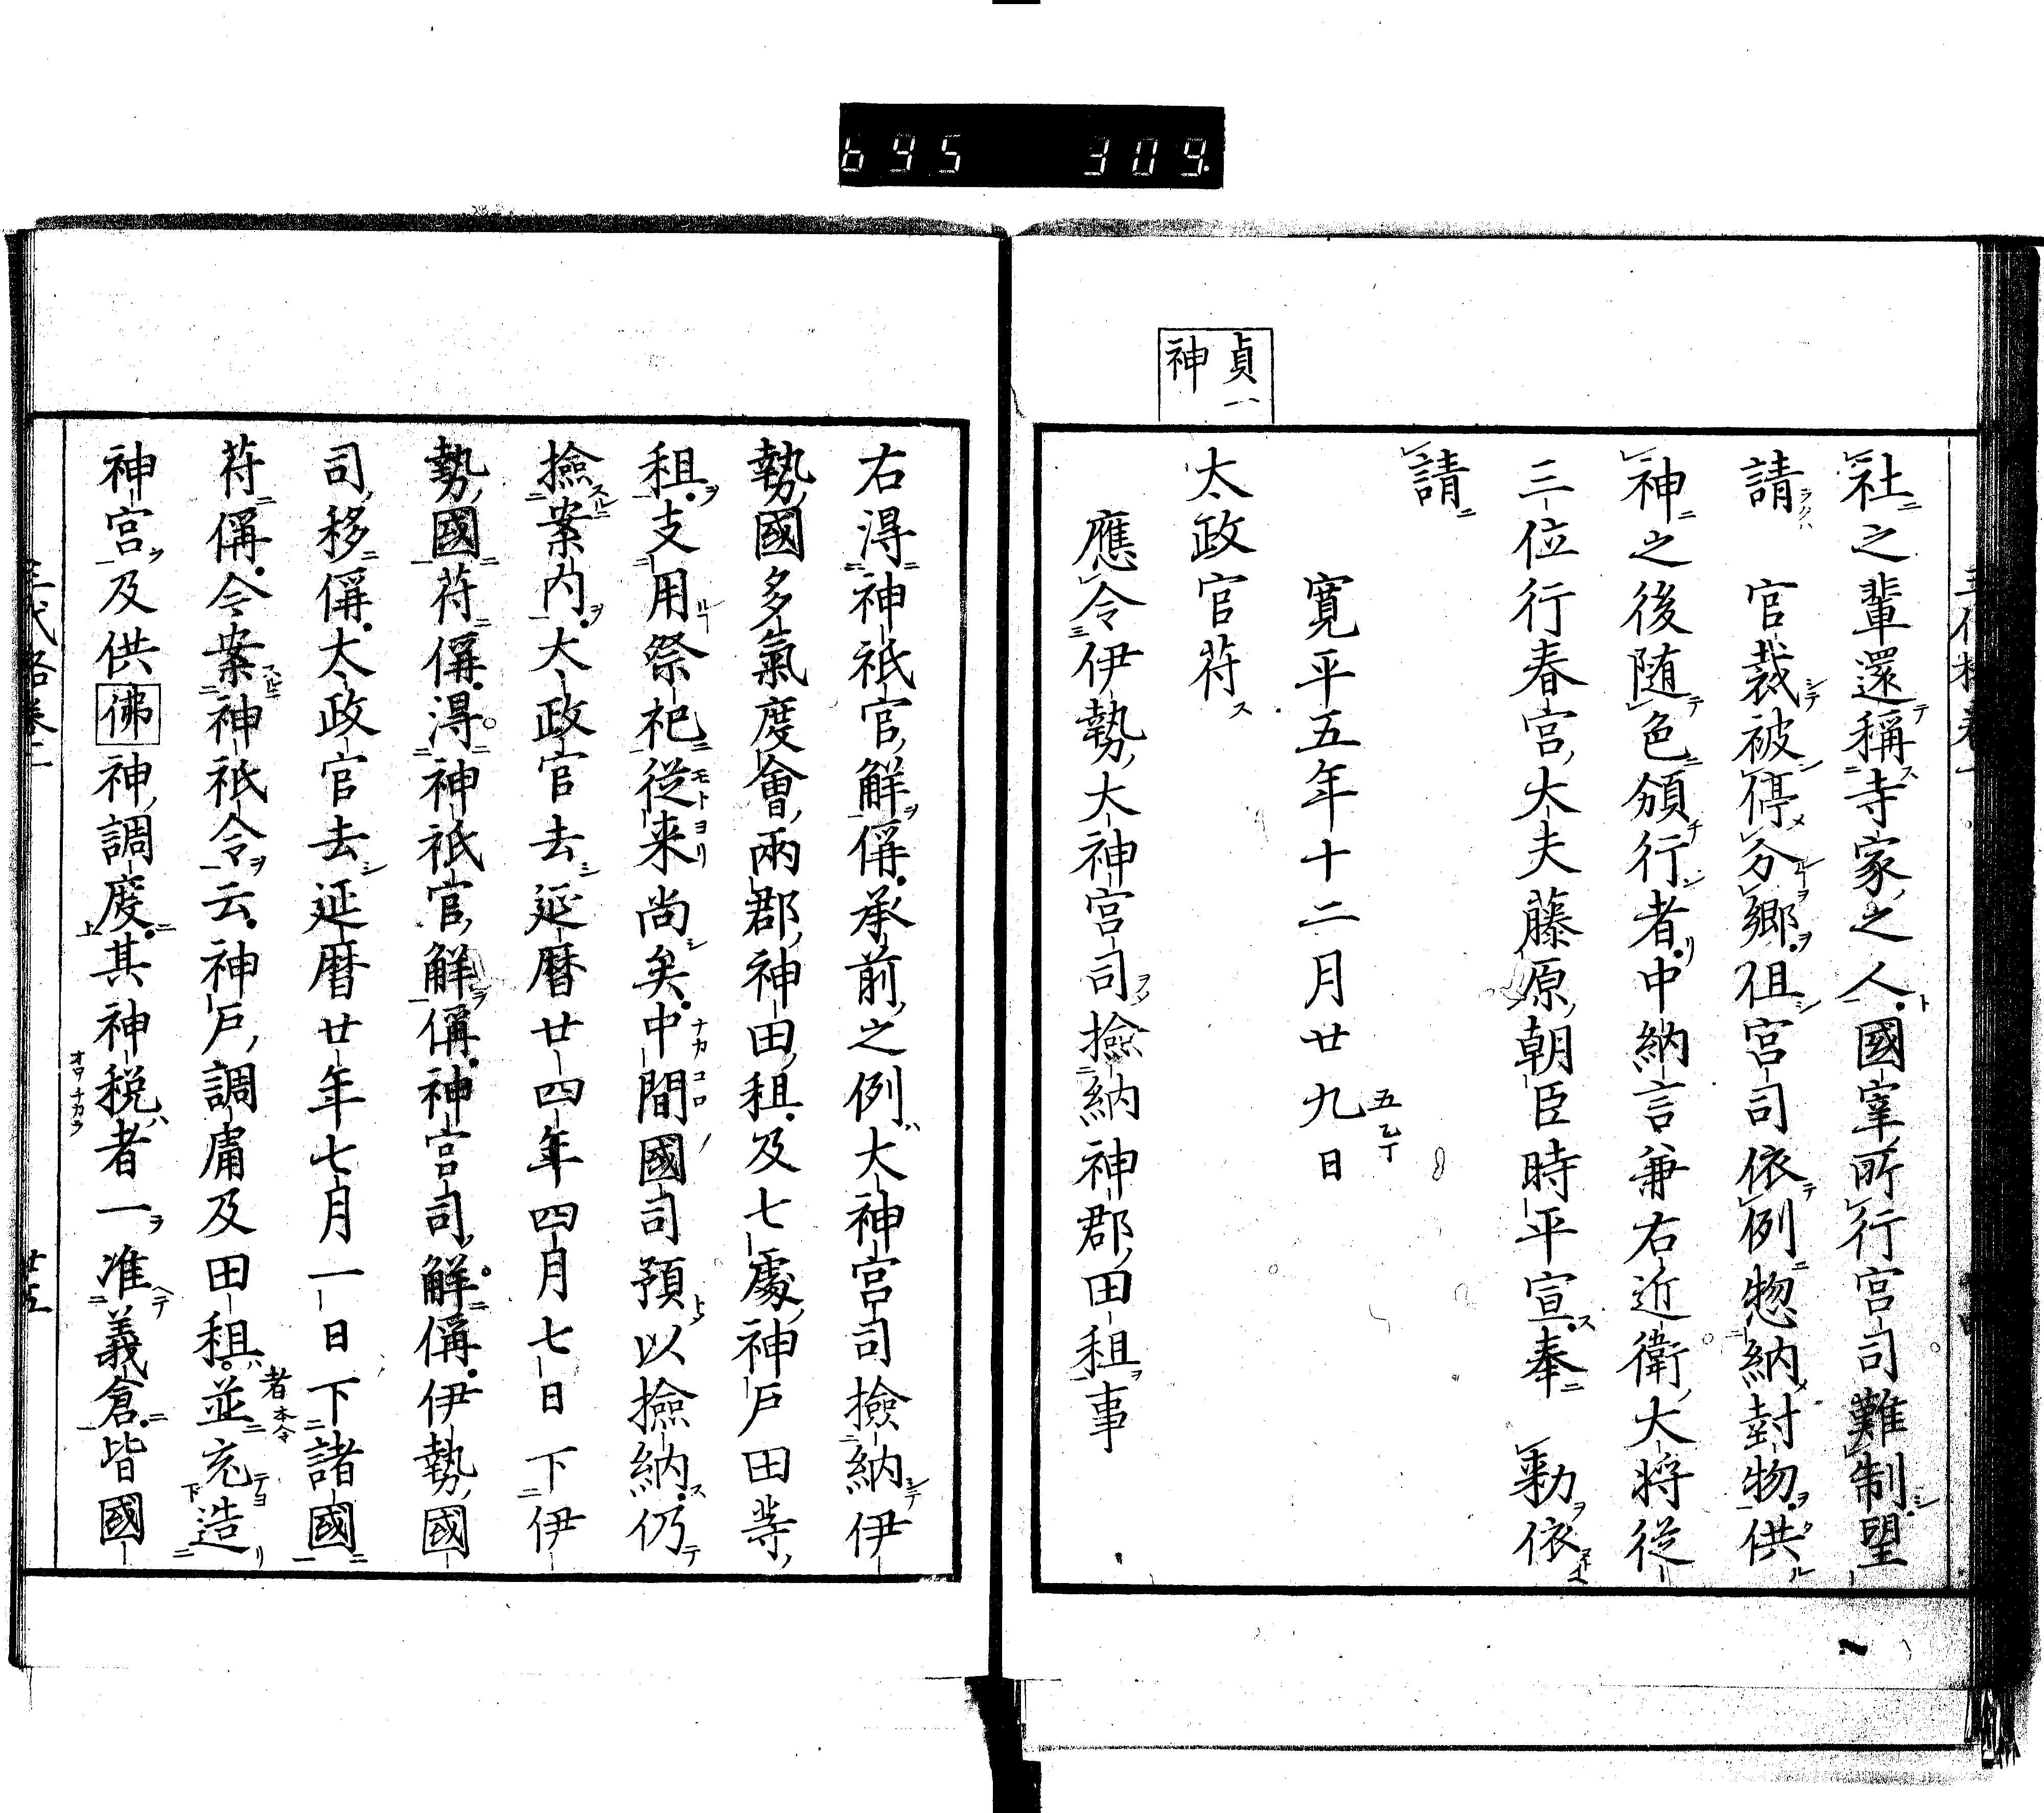 695 309
社之輩還稱寺家之人國宰所行宮司難制望
請 官裁被停分鄉徂宮司依例惣納封物供
神之後随色頒行者中納言兼右近衛大将從
三位行春宮大夫藤原朝臣時平宣奉 勅依
請
寛平五年十二月廿九日
五乙丁
貞一
神
太政官苻
應令伊勢大神宮司撿納神郡田租事
右淂神祇官解偁承前之例大神宮司撿納伊
勢國多氣度會兩郡神田租及七處神戸田等
租支用祭祀從来尚矣中間國司預以撿納仍
撿案内太政官去延暦廿四年四月七日下伊
勢國苻偁淂神祇官解偁神宮司解偁伊勢國
司移偁太政官去延暦廿年七月一日下諸國
苻偁令案神祇令云神戸調庸及田租並充造
者本令
神宮及供佛神調度其神税者一准義倉皆國
三代格卷一
廿五